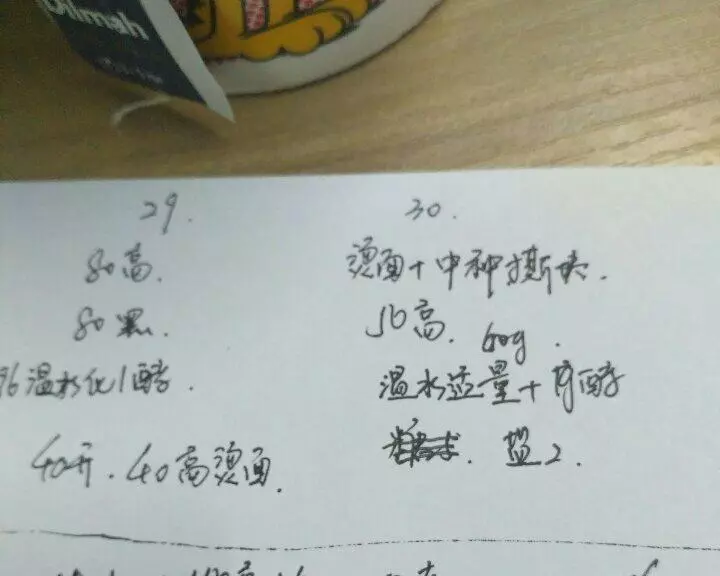 Dilmah
29.
80高.
80黑.
96温水化1酵.
40开.40高烫面.
30.
烫面+中种撕块.
50高. 60g.
温水适量+1酵
盐2.